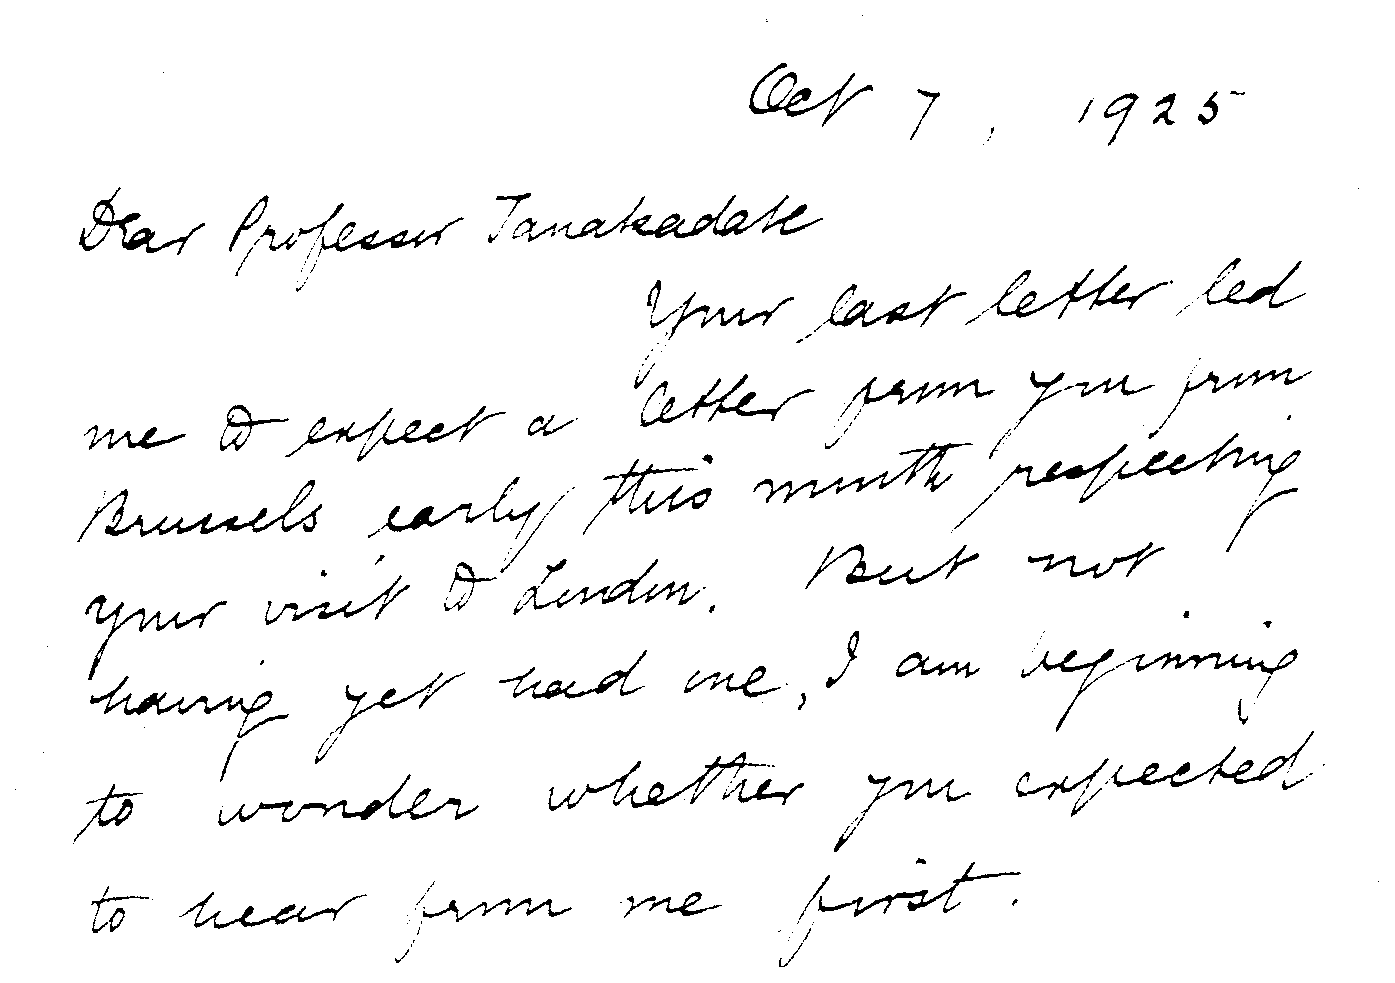 Oct 7, 1925
Dear Professor Tanakadate
Your last letter led
me to expect a letter from you from
Brussels early this month respecting
your visit to London. But not
having yet had one, I am beginning
to wonder whether you expected
to hear from me first.